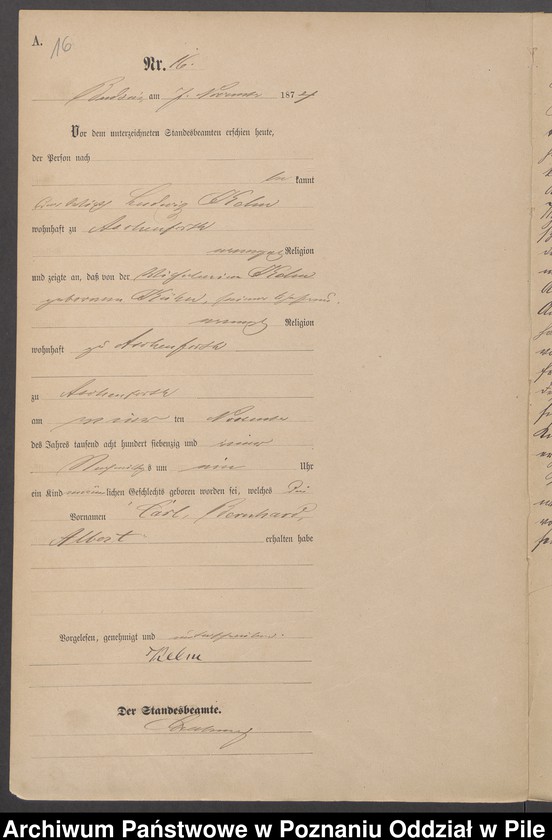 A.
16
Nr. 16.
am 7. November 1874
Vor dem unterzeichneten Standesbeamten erschien heute,
der Person nach
kannt
Ludwig Kelm
wohnhaft zu Aschenforth
evangel Religion
und zeigte an, daß von der Wilhelmine Kelm
geborenen seiner Ehefrau,
evangel Religion
wohnhaft zu Aschenforth
zu Aschenforth
am ten November
des Jahres tausend acht hundert siebenzig und vier
Nachmittags um ein Uhr
ein Kind männlichen Geschlechts geboren worden sei, welches die
Vornamen Carl, Bernhard,
Albert erhalten habe
Vorgelesen, genehmigt und unterschrieben.
Kelm
Der Standesbeamte.
Archiwum Państwowe w Poznaniu Oddział w Pile